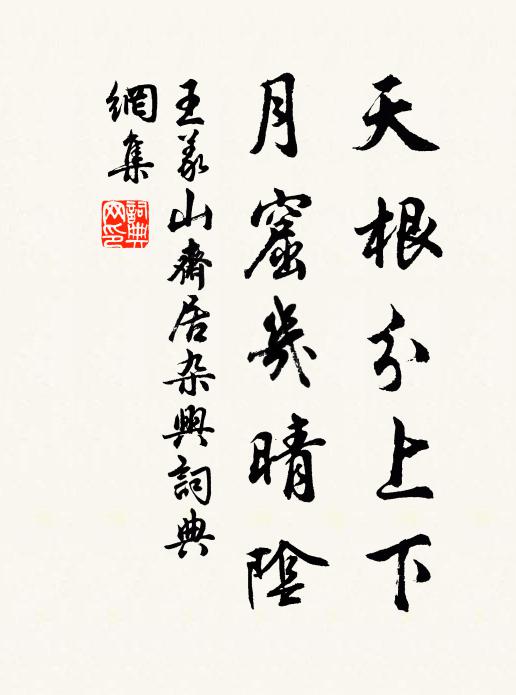 天根分上下
月窟幾晴陰
王義山齋居杂興詞典
網集
詞典网印